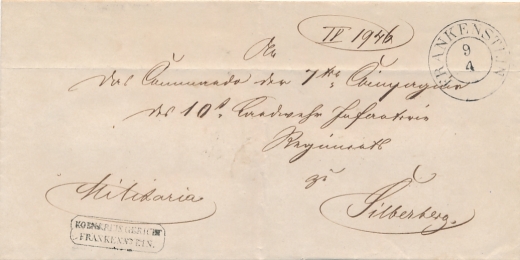 IV 1946
An
FRANKENSTEIN
9
4
das Commando der 7ten Compagnie
des 10t Landwehr Infanterie
Regiments
zu
Militaria
Silberberg.
KOEN. KREIS GERICHT
FRANKENSTEIN.